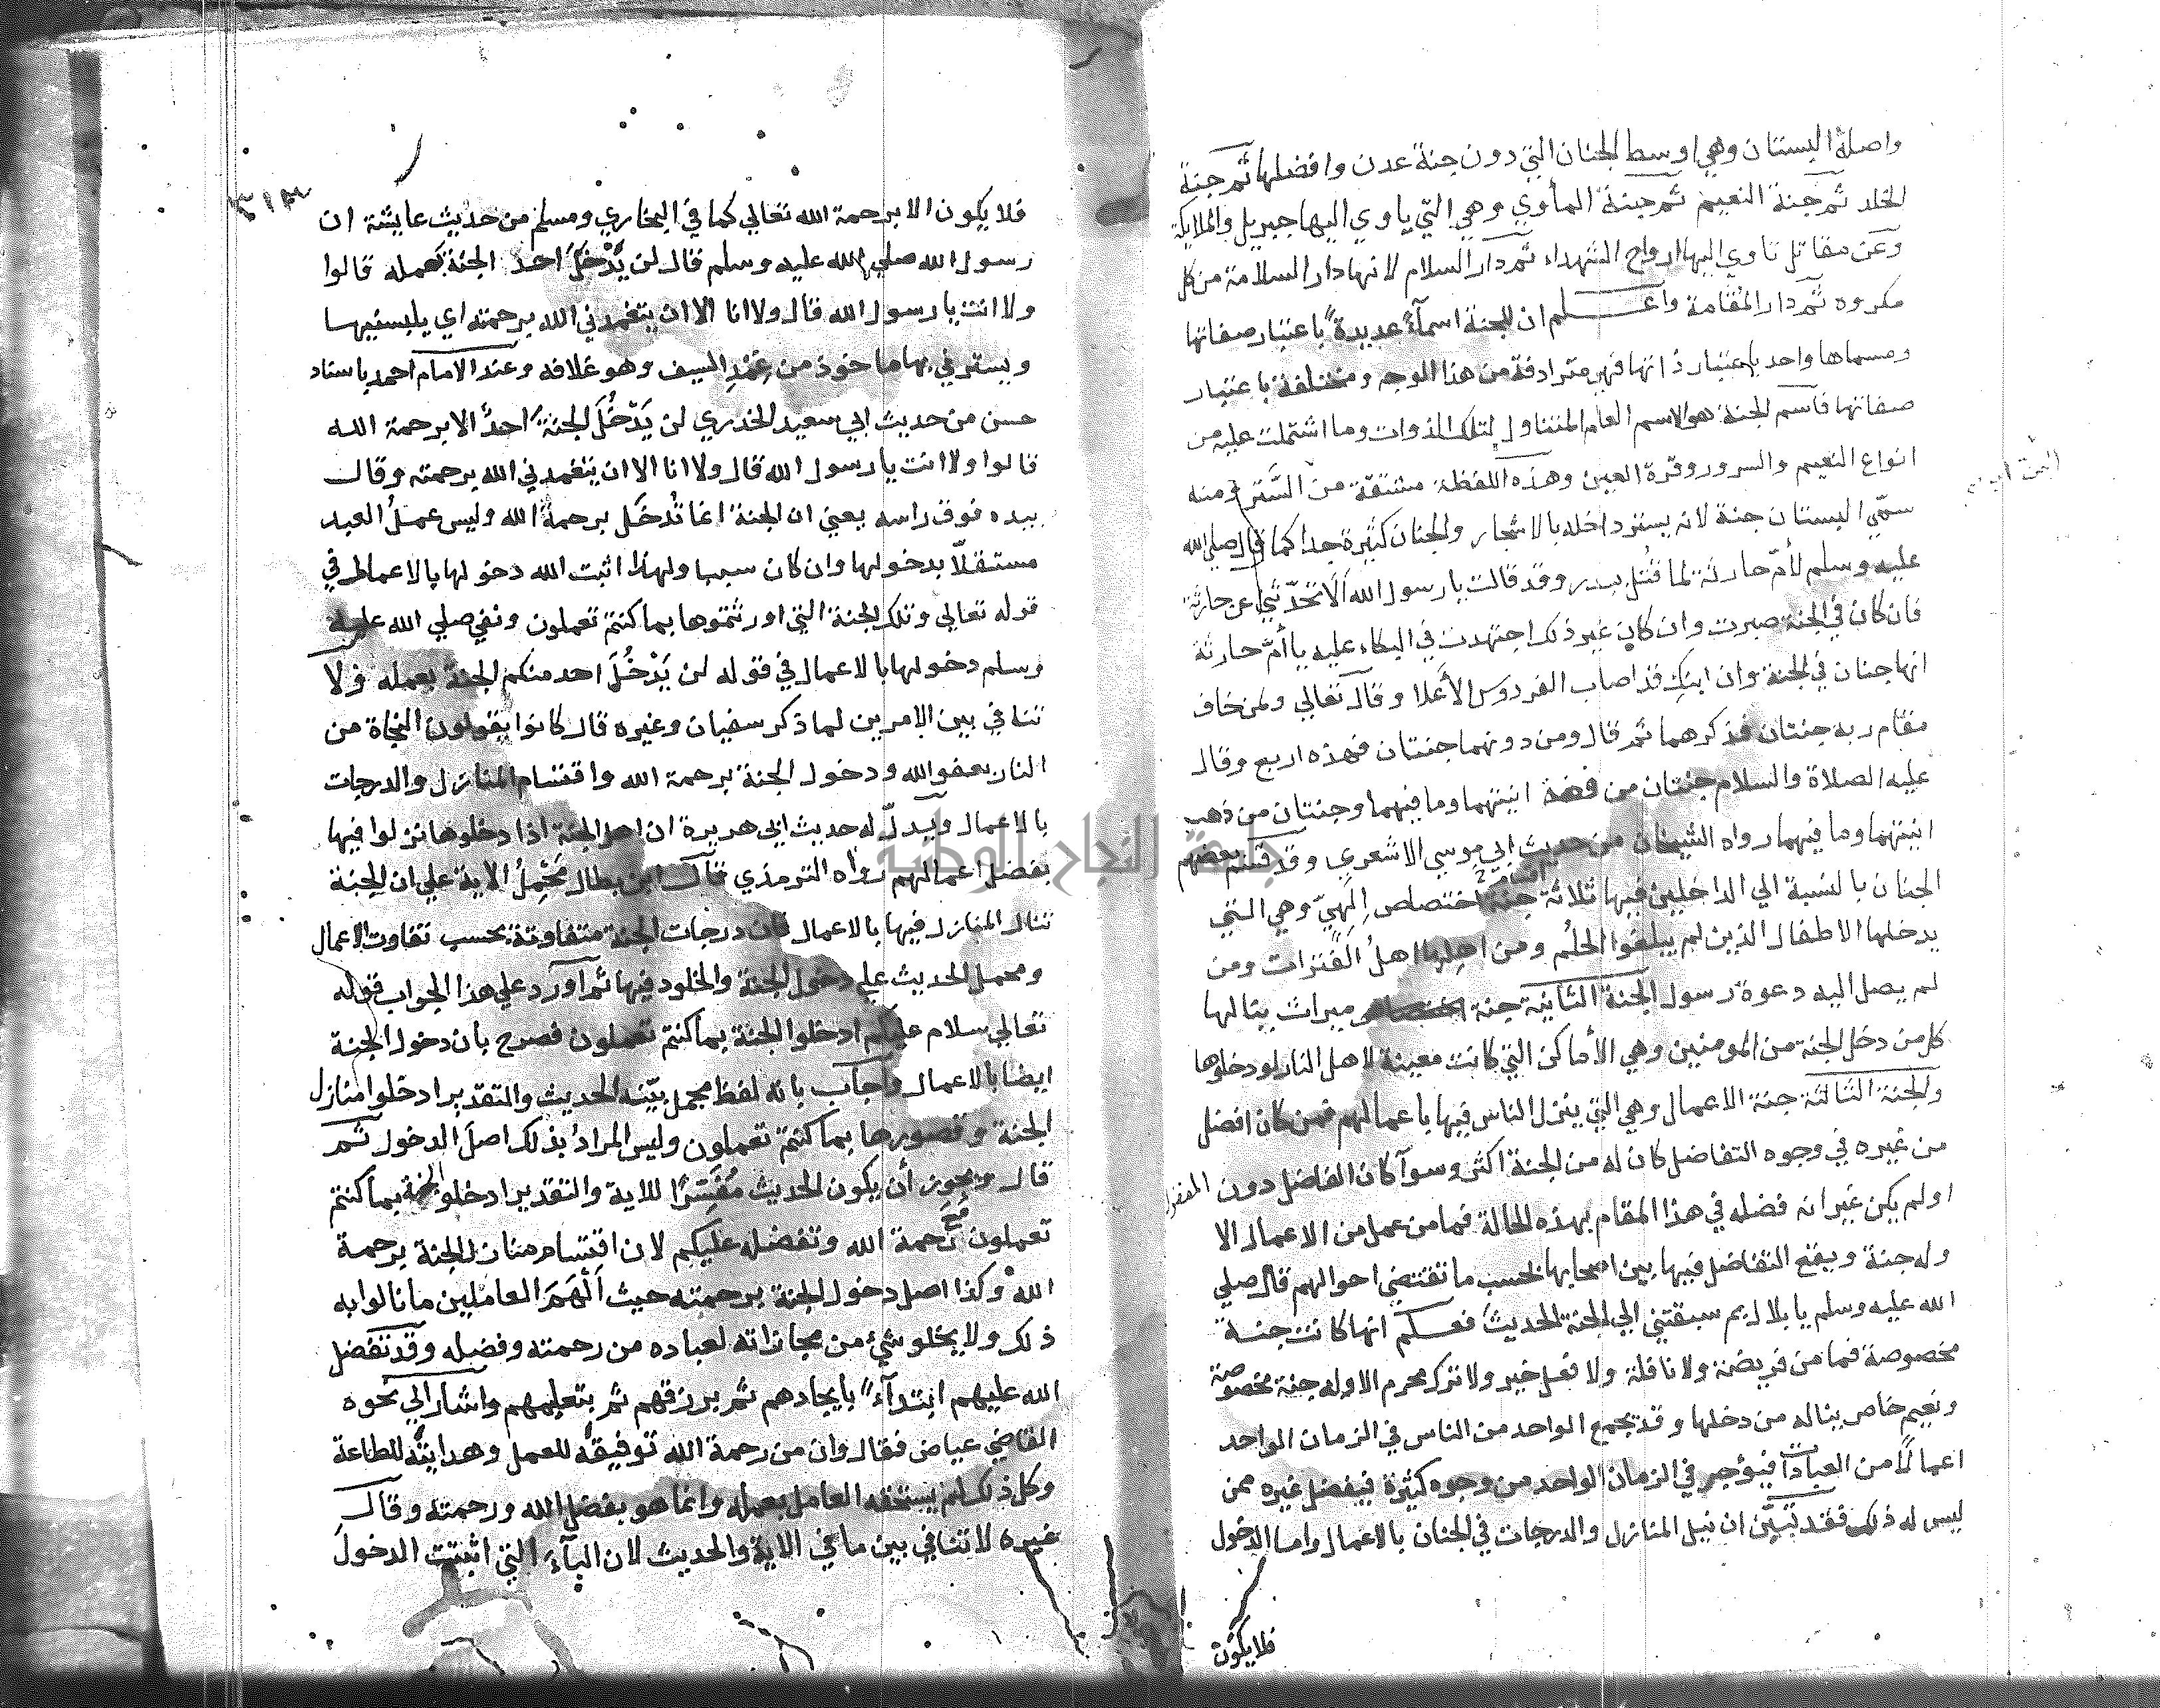 واصله البستان وهي اوسط الجنان التي دون جنة عدن وافضلها ثم جنة
الخلد ثم جنة النعيم ثم جنة المأوي وهي التي ياوي اليها جبريل والملايكة
وعن مقاتل تاوي اليها ارواح الشهداء ثم دار السلام لانها دار السلامة من كل
مكروه ثم دار المقامة واعلم ان للجنة اسمآءً عديدةً باعتبار صفاتها
ومسماها واحد باعتبار ذاتها فهي مترادفة من هذا الوجه ومختلفة باعتبار
صفاتها فاسم الجنة هو الاسم العام المتناول لتلك الذوات وما اشتملت عليه من
انواع النعيم والسرور وقرة العين وهذه اللفظة مشتقة من السَّتر ومنه
سمّي البستان جنة لانه يستر داخله بالاشجار والجنان كثيرة جدا كما قال صلي الله
عليه وسلم لأمّ حارثة لما قُتل ببدر وقد قالت يا رسول الله ألا تحدّثني عن حارثة
فان كان في الجنة صبرت وان كان غير ذلك اجتهدت في البكاء عليه يا أمّ حارثة
انها جنان في الجنة وان ابنكِ قد اصاب الفردوس الأعلا وقال تعالي ولمن خاف
مقام ربه جنتان فذكرهما ثم قال ومن دونهما جنتان فهذه اربع وقال
عليه الصلاة والسلام جنتان من فضة انيتهما وما فيهما وجنتان من ذهب
انيتهما وما فيهما رواه الشيخان من حديث ابي موسي الاشعري وقد قسّم بعضهم
الجنان بالنسبة الي الداخلين فيها ثلاثة جنة اختصاص إلهيّ وهي التي
يدخلها الاطفال الذين لم يبلغوا الحلُم ومن اهلها اهلُ الفترات ومن
لم يصل اليه دعوة رسول الجنة الثانية جنة ميراث ينالها
كل من دخل الجنة من المومنين وهي الأماكن التي كانت معينة لاهل النار لو دخلوها
والجنة الثالثة جنة الاعمال وهي التي ينزل الناس فيها باعمالهم فمن كان افضل
من غيره في وجوه التفاضل كان له من الجنة اكثر وسوآ كان الفاضل دون المفضول
او لم يكن غير انه فضله في هذا المقام بهذه الحالة فما من عمل من الاعمال الا
وله جنة ويقع التفاضل فيها بين اصحابها بحسب ما تقتضي احوالهم قال صلي
الله عليه وسلم يا بلال بم سبقتني الي الجنة الحديث فعلم انها كانت جنة
مخصوصة فما من فريضة ولا نافلة ولا فعل خير ولا ترك محرم الا وله جنة مخصوصة
ونعيم خاص يناله من دخلها وقد يجمع الواحد من الناس في الزمان الواحد
اعمالًا من العبادات فيؤجر في الزمان الواحد من وجوه كثيرة فيفضل غيره ممن
ليس له ذلك فقد تبيّن ان نيل المنازل والدرجات في الجنان بالاعمال واما الدخول
فلا يكون
فلا يكون الا برحمة الله تعالي كما في البخاري ومسلم من حديث عايشة ان
رسول الله صلي الله عليه وسلم قال لن يُدْخِلَ احد الجنة بعمله قالوا
ولا انت يا رسول الله قال ولا انا الا ان يتغمدني الله برحمته اي يلبسنيها
ويسترني بها ماخوذ من غِمْدِ السيف وهو غلافه وعند الامام احمد باسناد
حسن من حديث ابي سعيد الخدري لن يَدْخُلَ الجنةَ احدٌ الا برحمة الله
قالوا ولا انت يا رسول الله قال ولا انا الا ان يتغمدني الله برحمته وقال
بيده فوق راسه يعني ان الجنة انما تُدخَل برحمة الله وليس عملُ العبد
مستقلّا بدخولها وان كان سببا ولهذا اثبت الله دخولها بالاعمال في
قوله تعالي وتلك الجنة التي اورثتموها بما كنتم تعملون ونفي صلي الله عليه
وسلم دخولها بالاعمال في قوله لن يَدْخُلَ احد منكم الجنة بعمله ولا
تنافي بين الامرين لما ذكر سفيان وغيره قال كانوا يقولون النجاة من
النار بعفو الله ودخول الجنة برحمة الله واقتسام المنازل والدرجات
بالاعمال ويدلّ له حديث ابي هريرة ان اهل الجنة اذا دخلوها نزلوا فيها
بفضل اعمالهم رواه الترمذي قال ابن بطال محْمِلُ الاية علي ان الجنة
تنال المنازل فيها بالاعمال فان درجات الجنة متفاوتة بحسب تفاوت الاعمال
ومحمل الحديث علي دخول الجنة والخلود فيها ثم اورد علي هذا الجواب قوله
تعالي سلام عليكم ادخلوا الجنة بما كنتم تعملون فصرح بان دخول الجنة
ايضا بالاعمال واجاب بانه لفظ مجمل بيّنه الحديث والتقدير ادخلوا منازل
الجنة وقصورها بما كنتم تعملون وليس المرادُ بذلك اصلَ الدخول ثم
قال ويجوز أن يكون الحديث مُفَسِّرًا للاية والتقدير ادخلوا الجنة بما كنتم
تعملون مَعَ رحمة الله وتفضله عليكم لان اقتسام منازل الجنة برحمة
الله وكذا اصل دخول الجنة برحمته حيث أَلْهَمَ العاملين ما نالوا به
ذلك ولا يخلو شئ من مجازاته لعباده من رحمته وفضله وقد تفضل
الله عليهم ابتدآءً بايجادهم ثم برزقهم ثم بتعليمهم واشار الي نحوه
القاضي عياض فقال وان من رحمة الله توفيقُه للعمل وهدايتُه للطاعة
وكل ذلك لم يستحقه العامل بعمله وانما هو بفضل الله ورحمته وقال
غيره لا تنافي بين ما في الاية والحديث لان البآءَ التي اثبتت الدخول
جامعة النجاح الوطنية